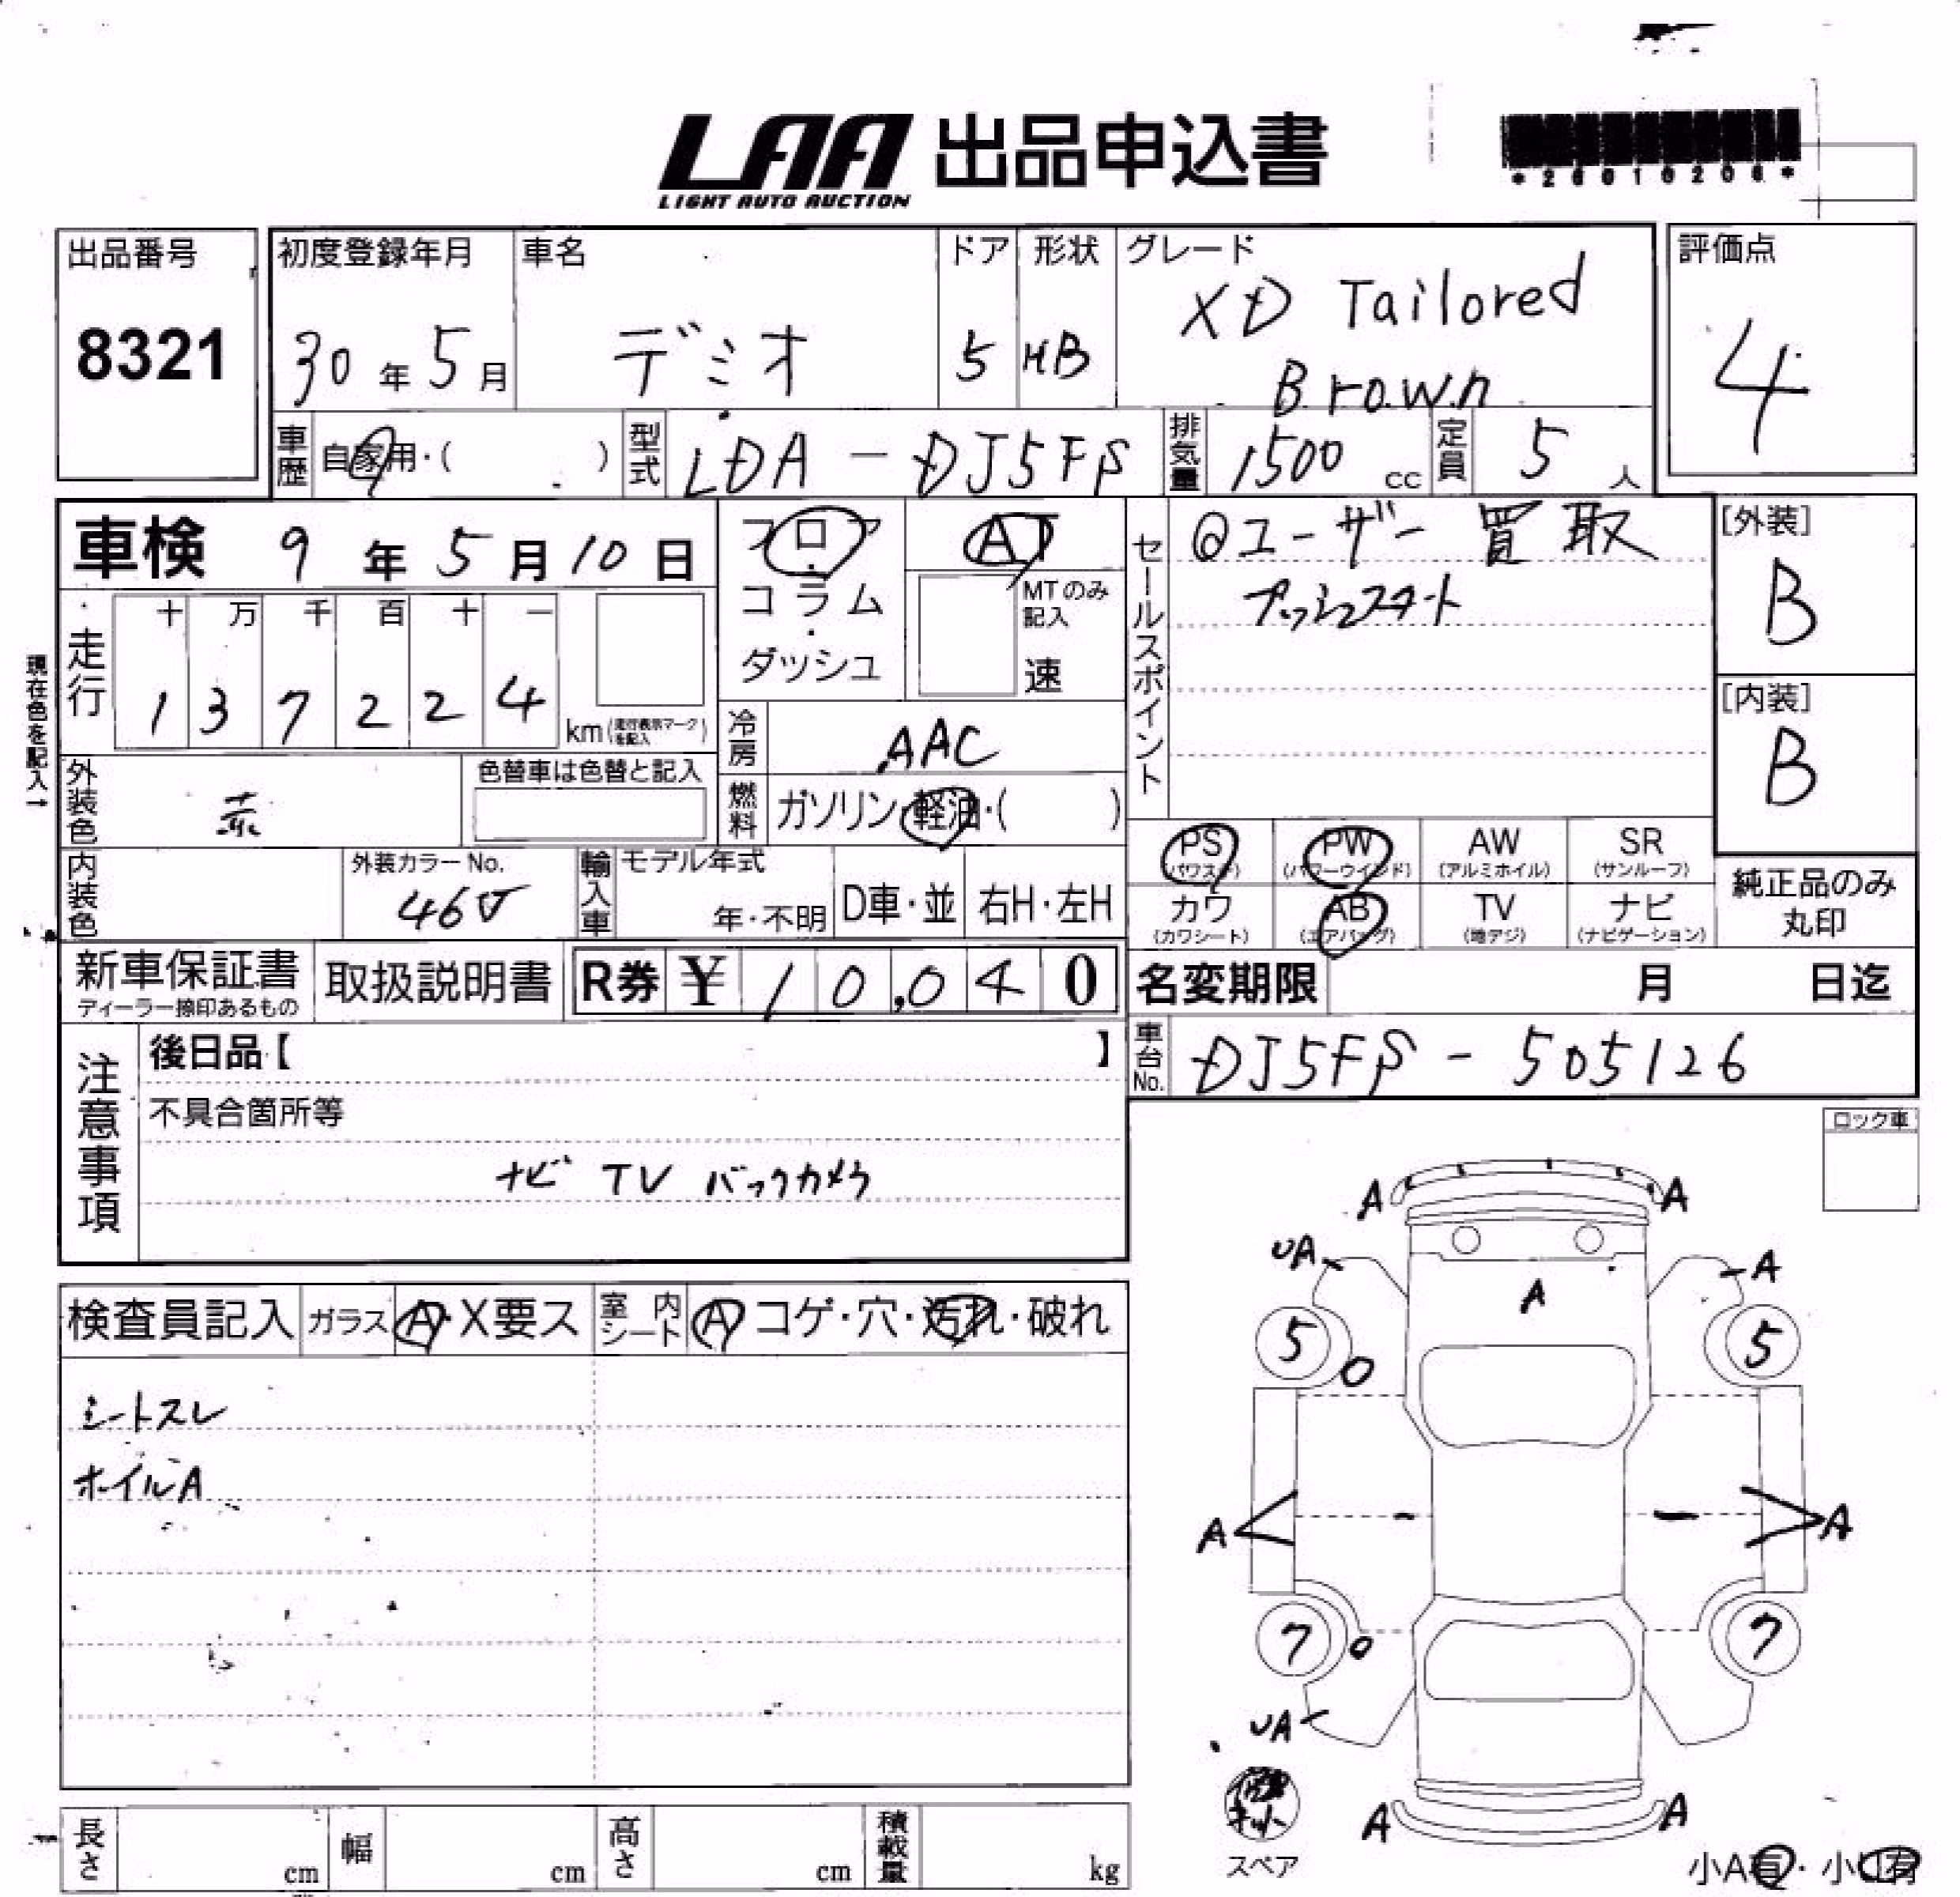 LAA 出品申込書
LIGHT AUTO AUCTION
*26010206*
出品番号
8321
初度登録年月
30年5月
車名
デミオ
ドア
5
形状
HB
グレード
XD Tailored
Brown
評価点
4
車歴 自家用・( )
型式 LDA-DJ5FS
排気量 1500 cc
定員 5 人
車検 9年5月10日
フロア・コラム・ダッシュ
AT
MTのみ記入
速
セールスポイント
@ユーザー買取
プッシュスタート
[外装]
B
[内装]
B
現在色を記入→
走行
十 万 千 百 十 一
1 3 7 2 2 4
km(走行表示マークを記入)
冷房 AAC
燃料 ガソリン・軽油・( )
外装色 赤
色替車は色替と記入
内装色
外装カラーNo.
46V
輸入車 モデル年式
年・不明
D車・並
右H・左H
PS (パワステ)
PW (パワーウインド)
AW (アルミホイル)
SR (サンルーフ)
カワ (カワシート)
AB (エアバッグ)
TV (地デジ)
ナビ (ナビゲーション)
純正品のみ
丸印
新車保証書
ディーラー捺印あるもの
取扱説明書
R券 ¥10,040
名変期限 月 日迄
車台No. DJ5FS-505126
注意事項
後日品【 】
不具合箇所等
ナビ TV バックカメラ
ロック車
検査員記入
ガラス A・X要ス
室内シート A コゲ・穴・汚れ・破れ
シートスレ
ホイルA
A A
UA A
A
5 5
A A
7 7
UA
A A
スペア
小A有・小U有
長さ cm
幅 cm
高さ cm
積載量 kg